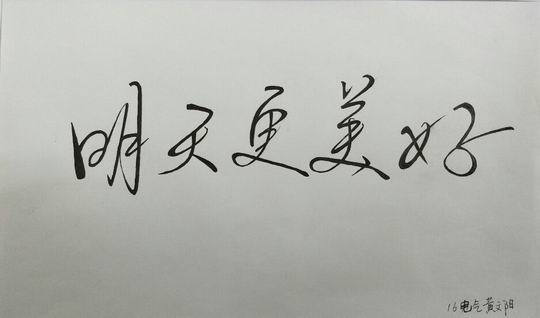 明天更美好
16电气黄文阳